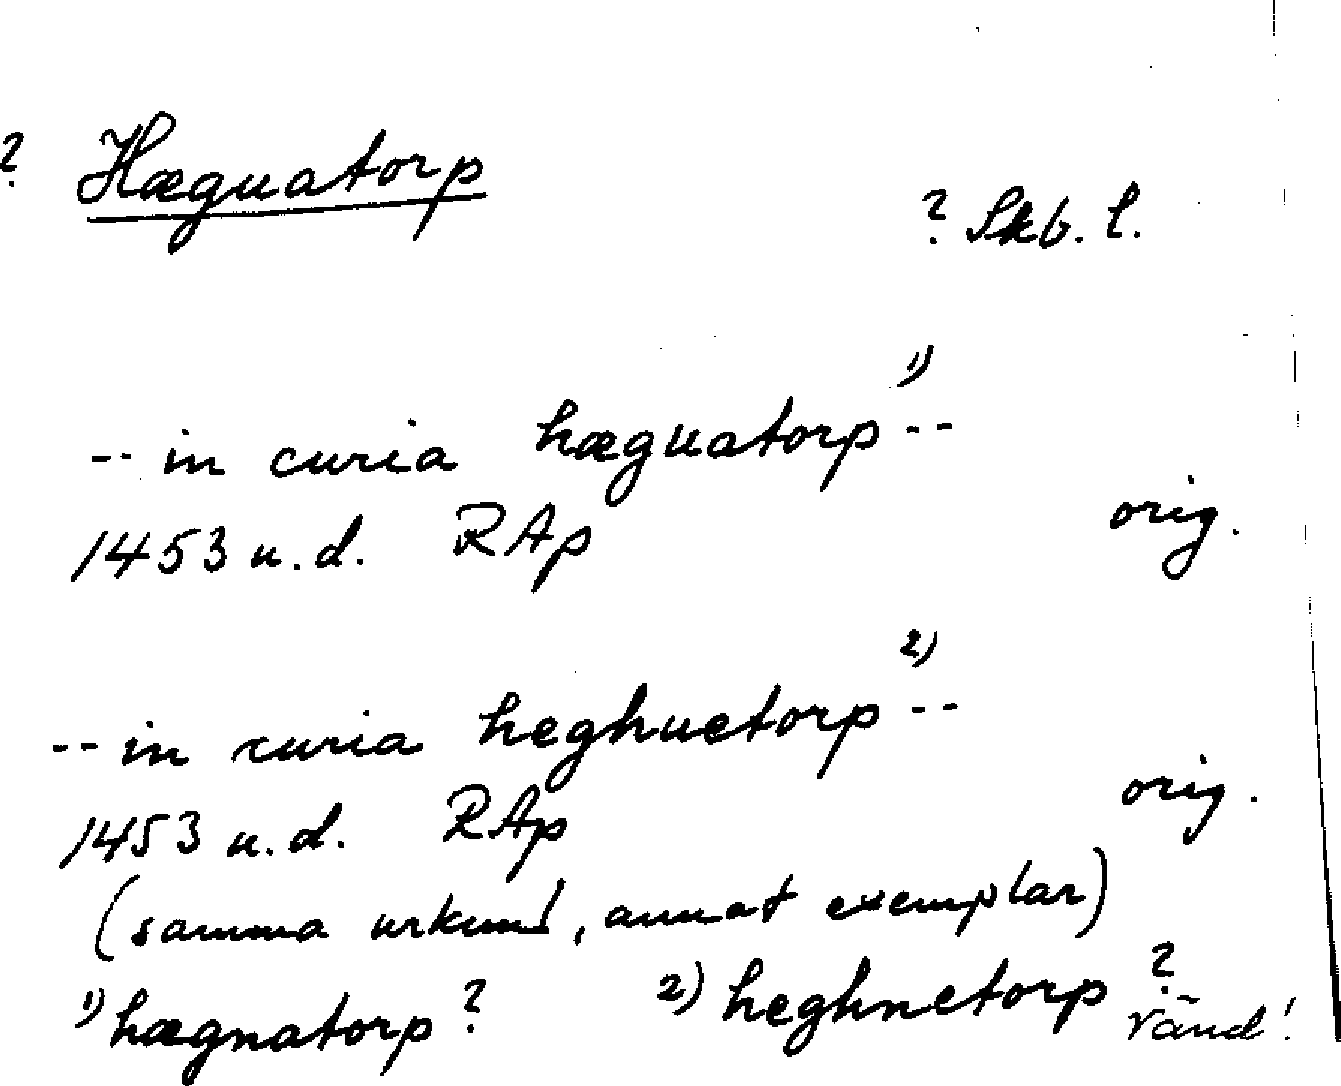 ? Hæguatorp
? Skb. l.
-- in curia hæguatorp 1) --
1453 u.d. RAp orig.
-- in curia heghuetorp 2) --
1453 u.d. RAp orig.
(samma urkund, annat exemplar)
1) hægnatorp? 2) heghnetorp?
vänd!